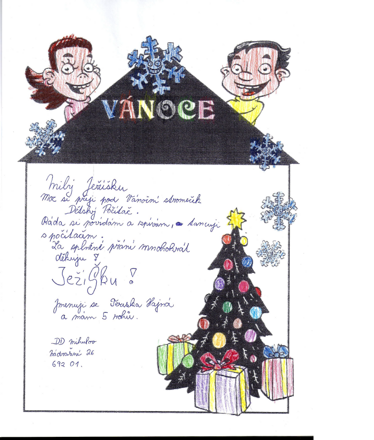 VÁNOCE
Milý Ježíšku
Moc si přeji pod Vánoční stromeček
Dětský Počítač.
Ráda si povídám a zpívám, tancuji
s počítačem.
Za splněné přání mnohokrát
děkuju !
Ježíšku !
Jmenuji se Terezka Hajná
a mám 5 roků.
DD Mikulov
Nádražní 26
692 01.